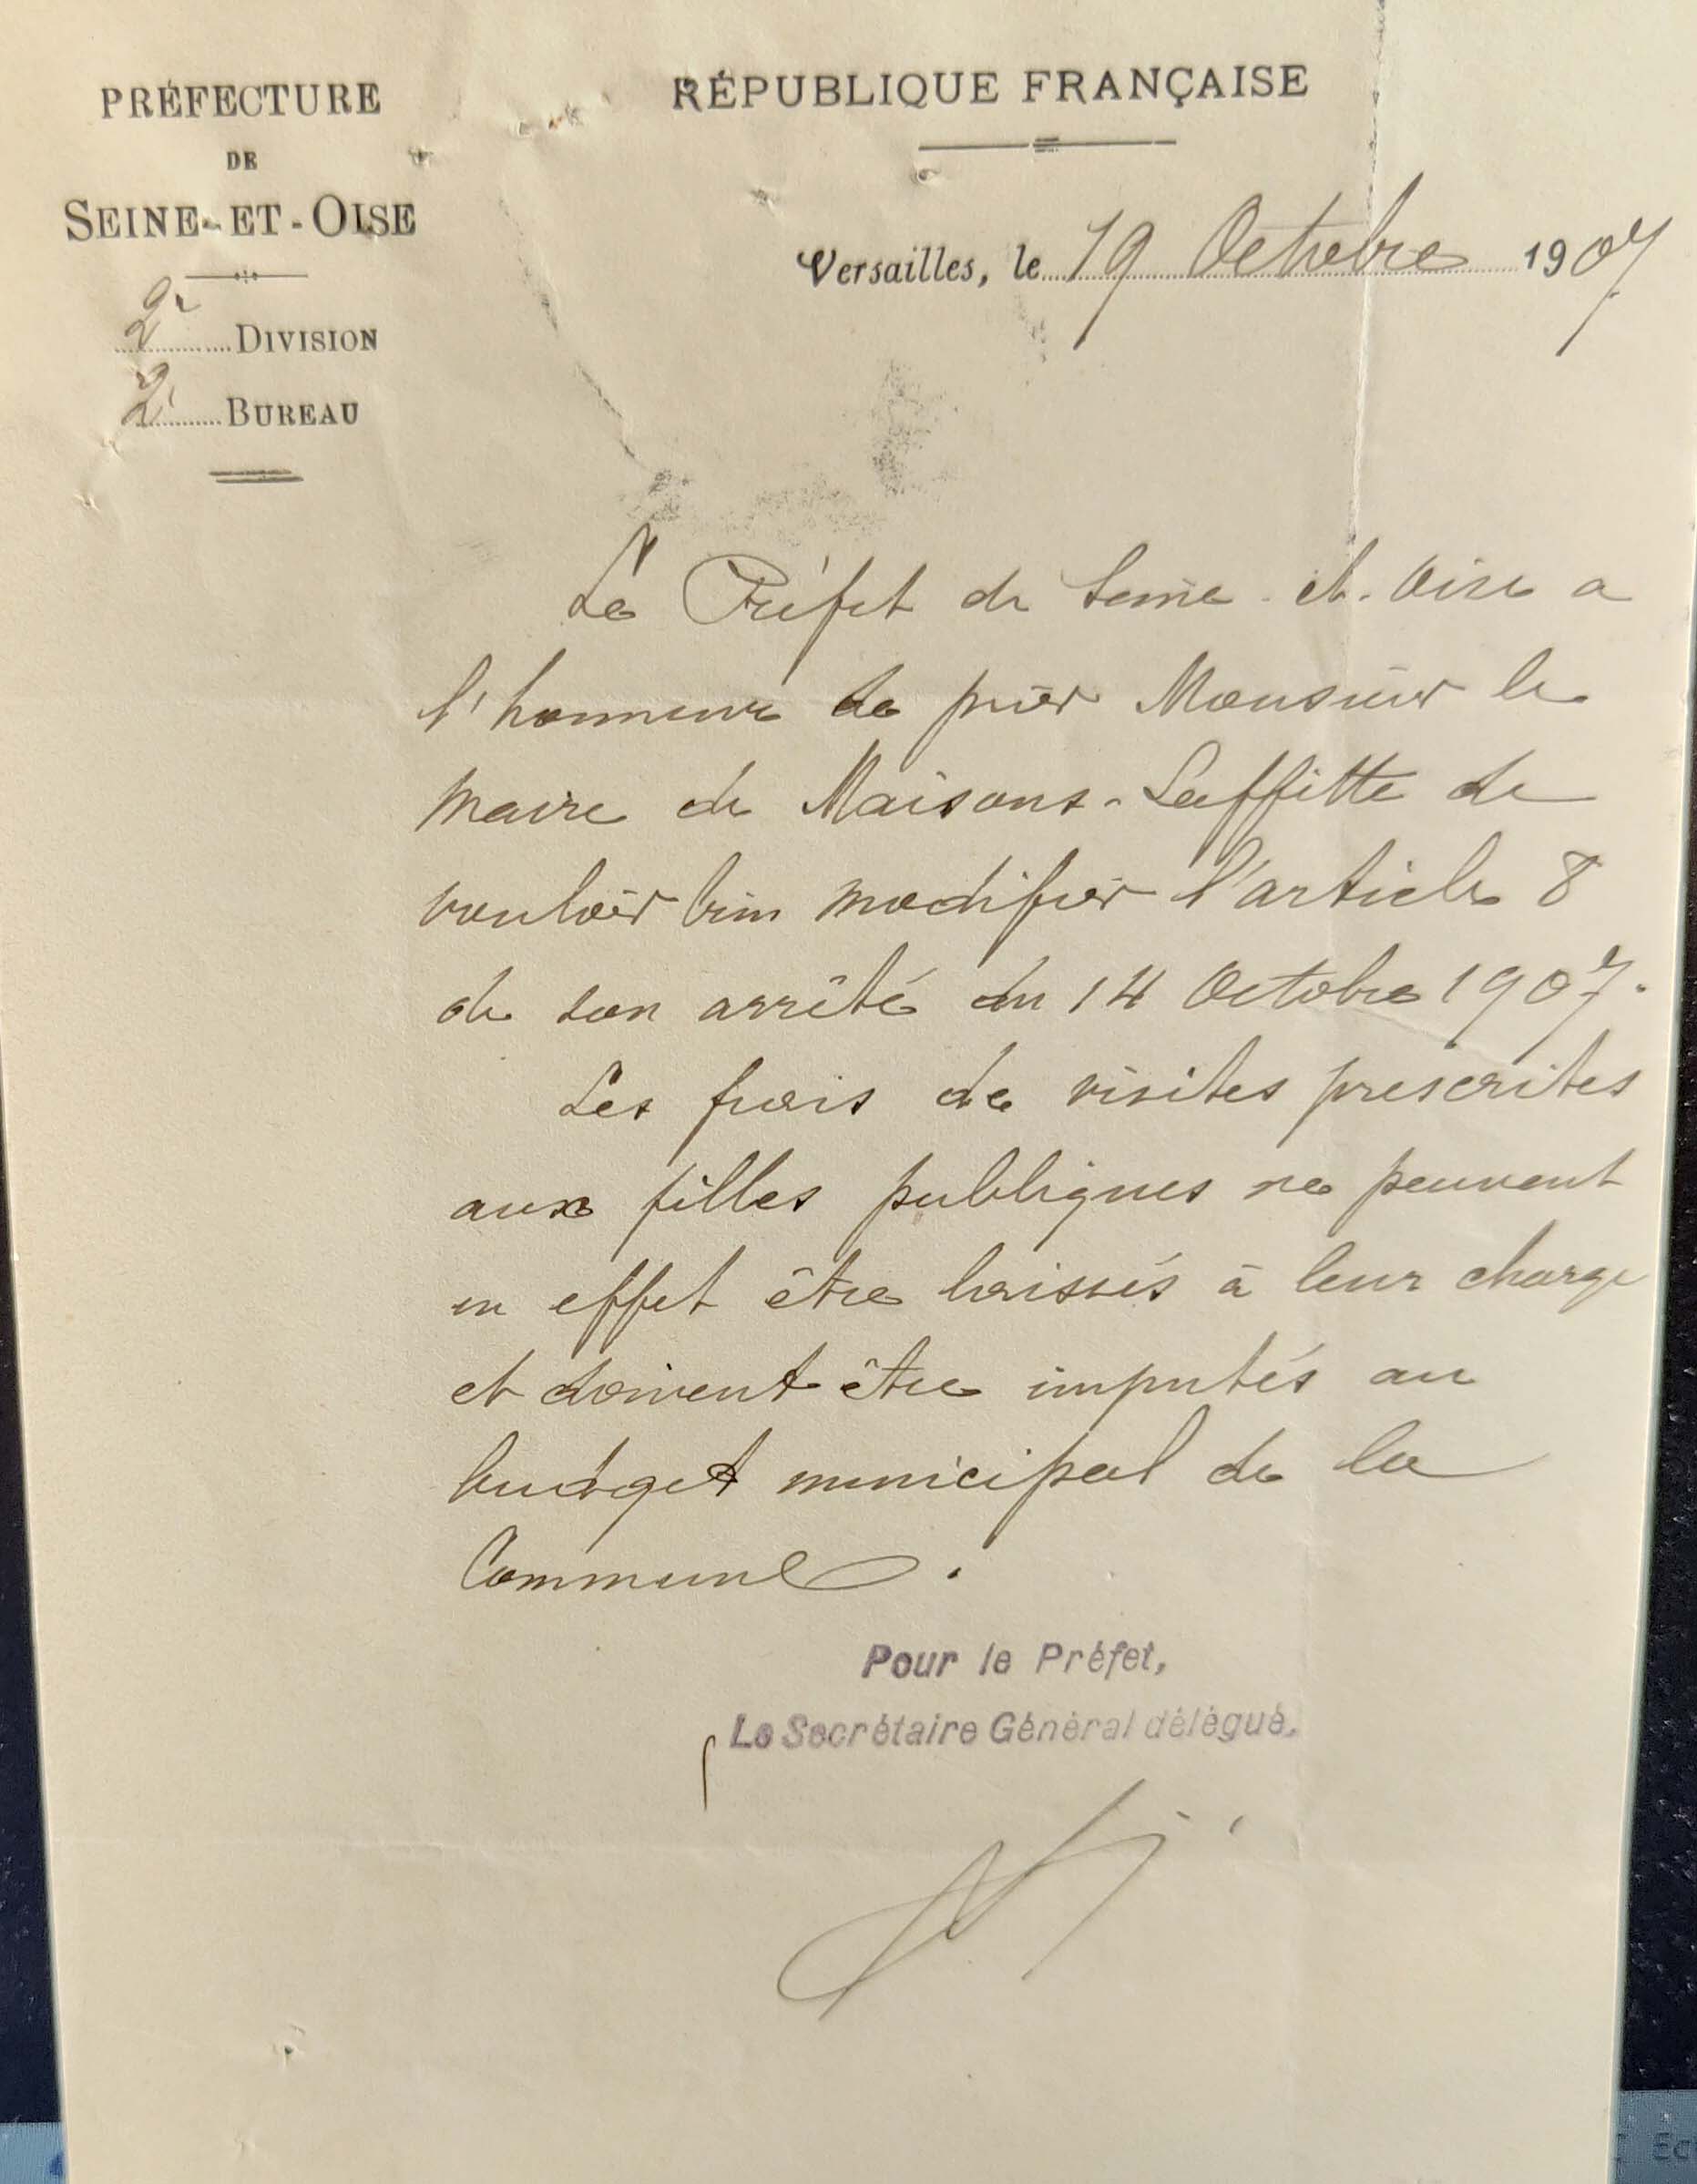 PRÉFECTURE
DE
SEINE-ET-OISE
2e DIVISION
2e BUREAU
RÉPUBLIQUE FRANÇAISE
Versailles, le 19 Octobre 1907
Le Préfet de Seine-et-Oise a
l'honneur de prier Monsieur le
Maire de Maisons-Laffitte de
vouloir bien modifier l'article 8
de son arrêté du 14 Octobre 1907.
Les frais de visites prescrites
aux filles publiques ne peuvent
en effet être laissés à leur charge
et doivent être imputés au
budget municipal de la
Commune.
Pour le Préfet,
Le Secrétaire Général délégué,